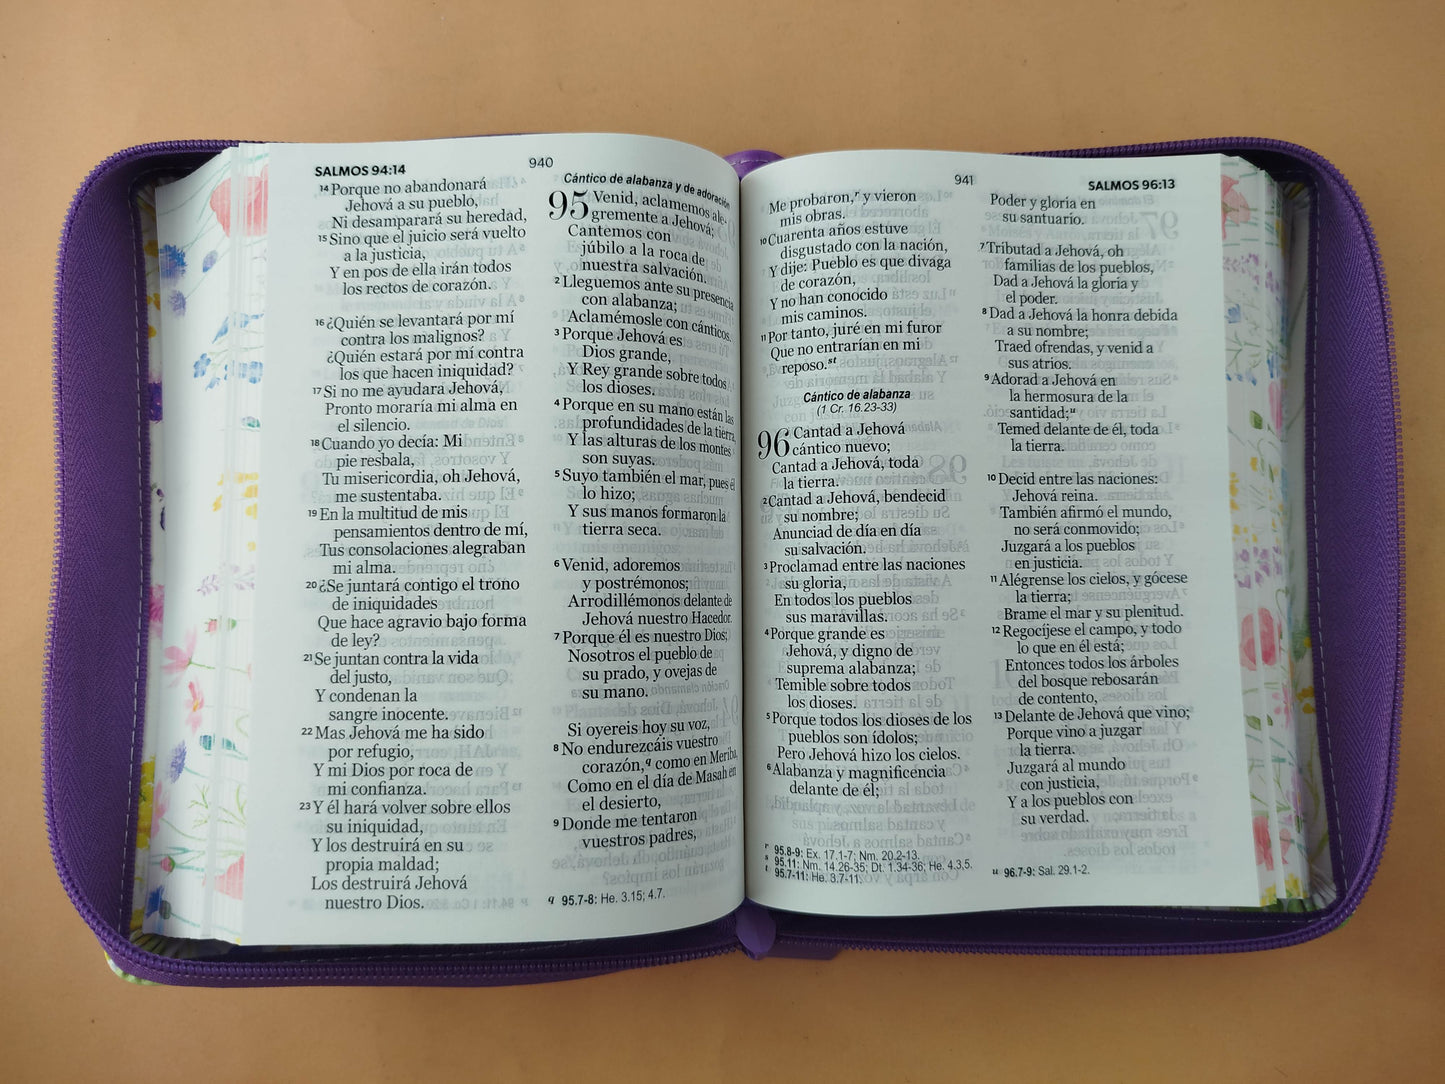 SALMOS 94:14
940
14 Porque no abandonará
Jehová a su pueblo,
Ni desamparará su heredad,
15 Sino que el juicio será vuelto
a la justicia,
Y en pos de ella irán todos
los rectos de corazón.
16 ¿Quién se levantará por mí
contra los malignos?
¿Quién estará por mí contra
los que hacen iniquidad?
17 Si no me ayudara Jehová,
Pronto moraría mi alma en
el silencio.
18 Cuando yo decía: Mi
pie resbala,
Tu misericordia, oh Jehová,
me sustentaba.
19 En la multitud de mis
pensamientos dentro de mí,
Tus consolaciones alegraban
mi alma.
20 ¿Se juntará contigo el trono
de iniquidades
Que hace agravio bajo forma
de ley?
21 Se juntan contra la vida
del justo,
Y condenan la
sangre inocente.
22 Mas Jehová me ha sido
por refugio,
Y mi Dios por roca de
mi confianza.
23 Y él hará volver sobre ellos
su iniquidad,
Y los destruirá en su
propia maldad;
Los destruirá Jehová
nuestro Dios.
Cántico de alabanza y de adoración
95 Venid, aclamemos ale-
gremente a Jehová;
Cantemos con
júbilo a la roca de
nuestra salvación.
2 Lleguemos ante su presencia
con alabanza;
Aclamémosle con cánticos.
3 Porque Jehová es
Dios grande,
Y Rey grande sobre todos
los dioses.
4 Porque en su mano están las
profundidades de la tierra,
Y las alturas de los montes
son suyas.
5 Suyo también el mar, pues él
lo hizo;
Y sus manos formaron la
tierra seca.
6 Venid, adoremos
y postrémonos;
Arrodillémonos delante de
Jehová nuestro Hacedor.
7 Porque él es nuestro Dios;
Nosotros el pueblo de
su prado, y ovejas de
su mano.
Si oyereis hoy su voz,
8 No endurezcáis vuestro
corazón,q como en Meriba,
Como en el día de Masah en
el desierto,
9 Donde me tentaron
vuestros padres,
q 95.7-8: He. 3.15; 4.7.
941
SALMOS 96:13
Me probaron,r y vieron
mis obras.
10 Cuarenta años estuve
disgustado con la nación,
Y dije: Pueblo es que divaga
de corazón,
Y no han conocido
mis caminos.
11 Por tanto, juré en mi furor
Que no entrarían en mi
reposo.st
Cántico de alabanza
(1 Cr. 16.23-33)
96 Cantad a Jehová
cántico nuevo;
Cantad a Jehová, toda
la tierra.
2 Cantad a Jehová, bendecid
su nombre;
Anunciad de día en día
su salvación.
3 Proclamad entre las naciones
su gloria,
En todos los pueblos
sus maravillas.
4 Porque grande es
Jehová, y digno de
suprema alabanza;
Temible sobre todos
los dioses.
5 Porque todos los dioses de los
pueblos son ídolos;
Pero Jehová hizo los cielos.
6 Alabanza y magnificencia
delante de él;
r 95.8-9: Ex. 17.1-7; Nm. 20.2-13.
s 95.11: Nm. 14.26-35; Dt. 1.34-36; He. 4.3,5.
t 95.7-11: He. 3.7-11.
Poder y gloria en
su santuario.
7 Tributad a Jehová, oh
familias de los pueblos,
Dad a Jehová la gloria y
el poder.
8 Dad a Jehová la honra debida
a su nombre;
Traed ofrendas, y venid a
sus atrios.
9 Adorad a Jehová en
la hermosura de la
santidad;u
Temed delante de él, toda
la tierra.
10 Decid entre las naciones:
Jehová reina.
También afirmó el mundo,
no será conmovido;
Juzgará a los pueblos
en justicia.
11 Alégrense los cielos, y gócese
la tierra;
Brame el mar y su plenitud.
12 Regocíjese el campo, y todo
lo que en él está;
Entonces todos los árboles
del bosque rebosarán
de contento,
13 Delante de Jehová que vino;
Porque vino a juzgar
la tierra.
Juzgará al mundo
con justicia,
Y a los pueblos con
su verdad.
u 96.7-9: Sal. 29.1-2.